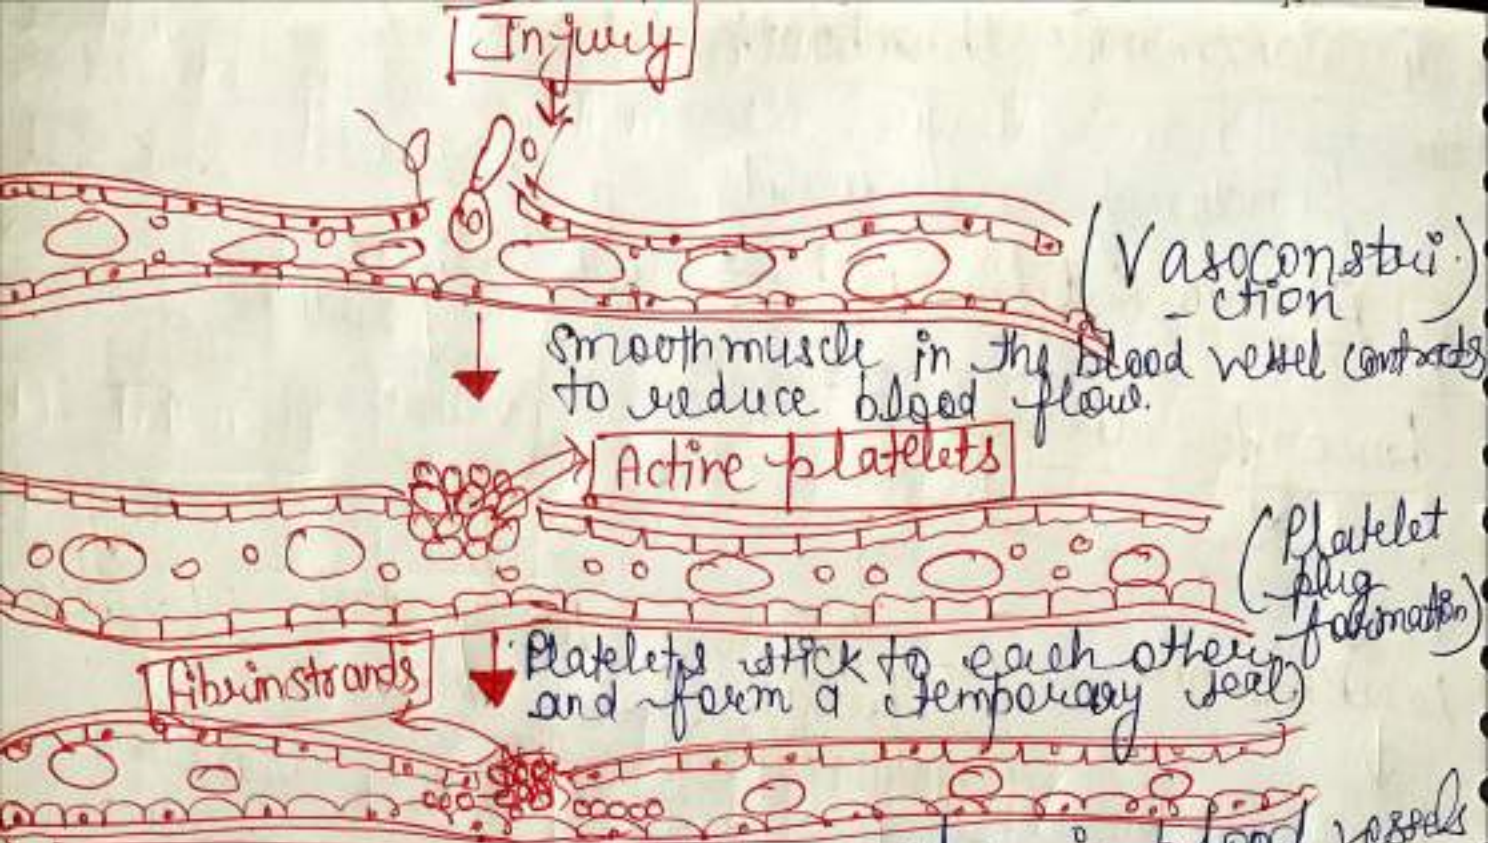 Injury
(Vasoconstri
-ction)
Smoothmuscle in the blood vessel contracts
to reduce blood flow.
Active platelets
(Platelet
plug
formation)
Platelets stick to each other
and form a temporary seal)
fibrinstrands
blood vessels